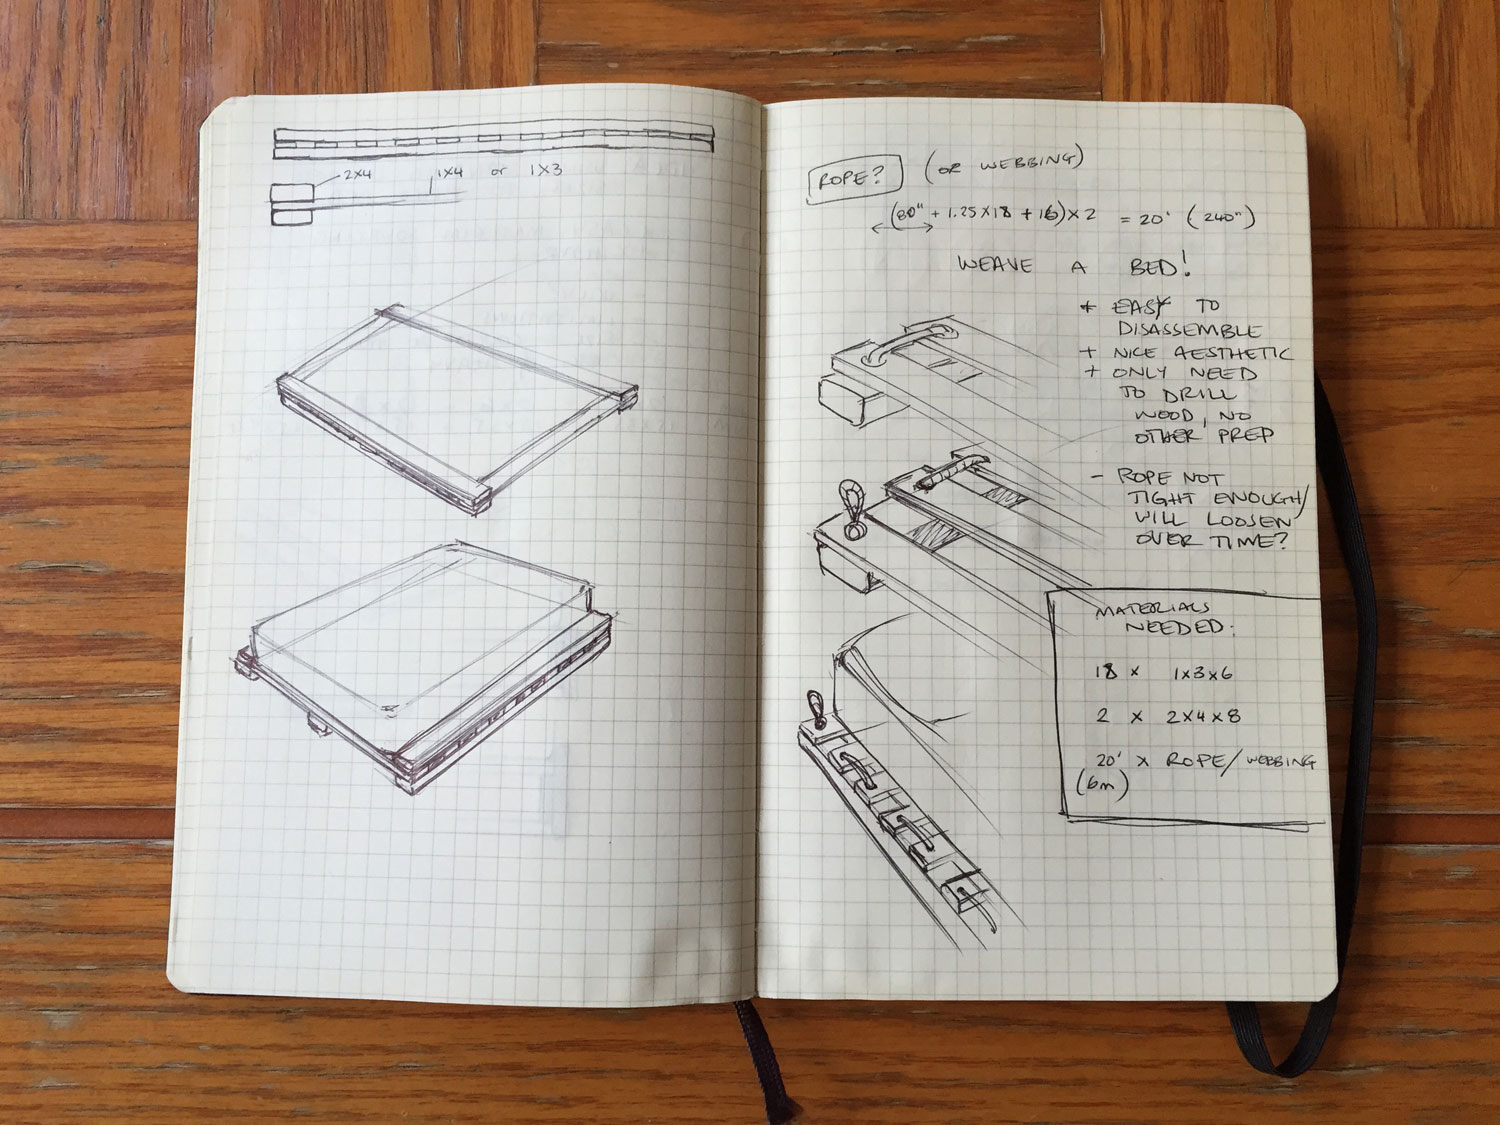 2x4 1x4 or 1x3
ROPE? (OR WEBBING)
(80" + 1.25x18 + 16)x2 = 20' (240")
WEAVE A BED!
+ EASY TO
DISASSEMBLE
+ NICE AESTHETIC
+ ONLY NEED
TO DRILL
WOOD, NO
OTHER PREP
- ROPE NOT
TIGHT ENOUGH/
WILL LOOSEN
OVER TIME?
MATERIALS
NEEDED:
18 x 1x3x6
2 x 2x4x8
20' x ROPE/WEBBING
(6m)